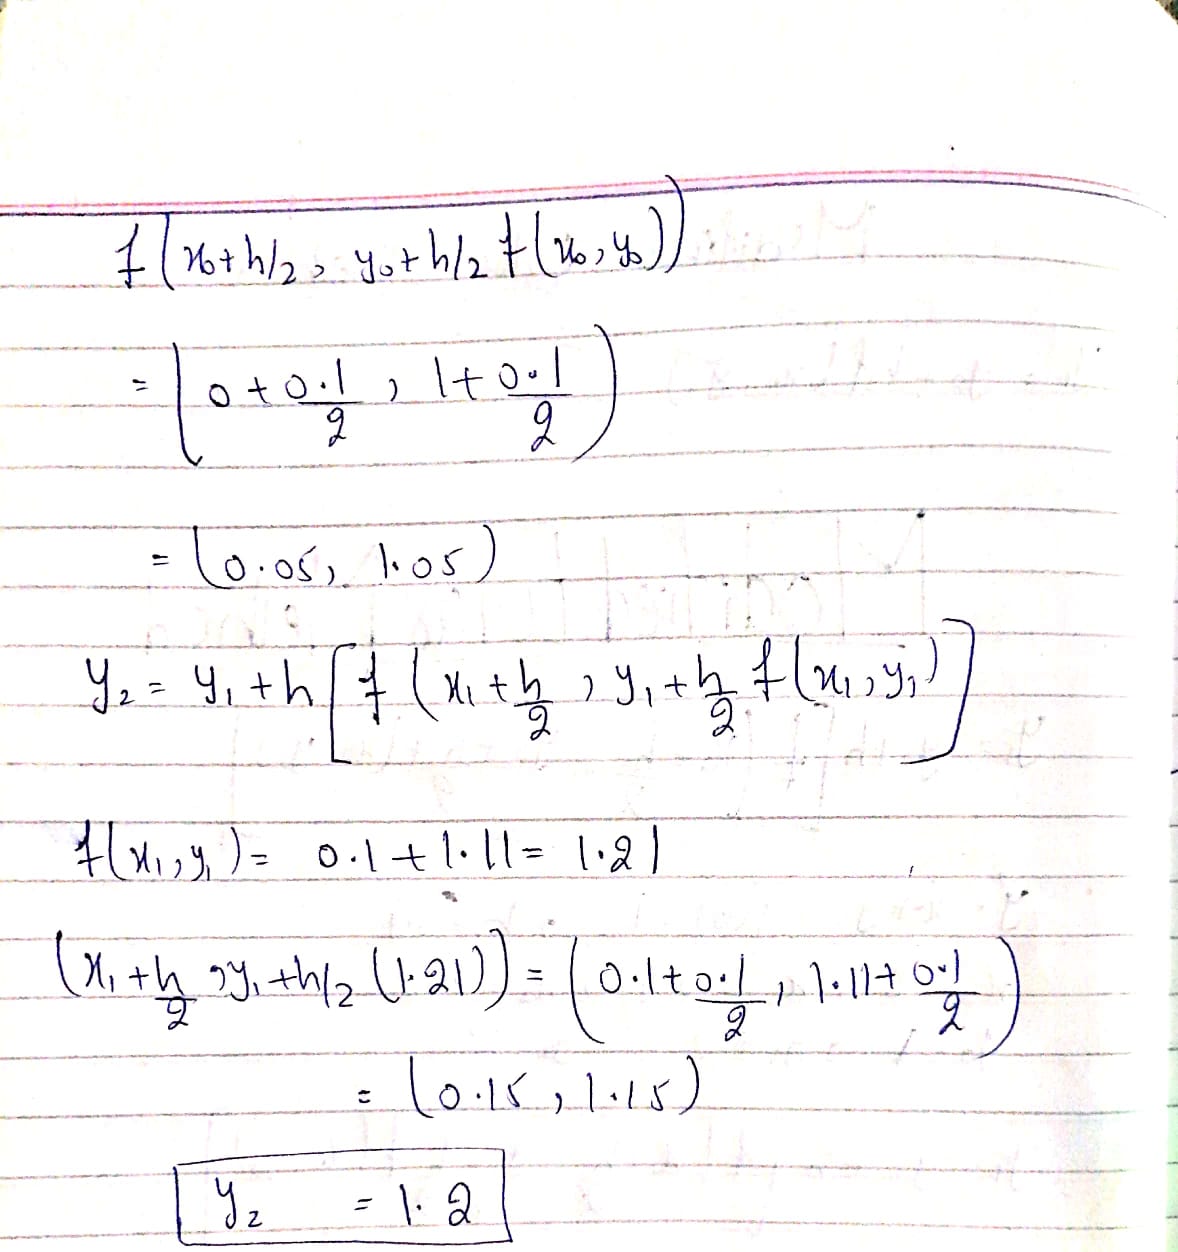 f(x₀+h/2, y₀+h/2 f(x₀,y₀))
= (0+0.1/2, 1+0.1/2)
= (0.05, 1.05)
y₂ = y₁+h[f(x₁+h/2, y₁+h/2 f(x₁,y₁)]
f(x₁,y₁) = 0.1+1.11 = 1.21
(x₁+h/2, y₁+h/2 (1.21)) = (0.1+0.1/2, 1.11+0.1/2)
= (0.15, 1.15)
y₂ = 1.2